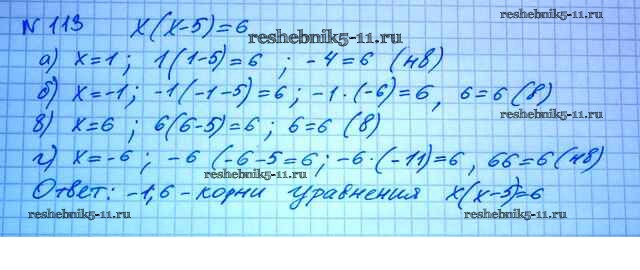 reshebnik5-11.ru
№ 113 x(x-5)=6
reshebnik5-11.ru
а) x=1; 1(1-5)=6 ; -4=6 (нв)
б) x=-1; -1(-1-5)=6; -1·(-6)=6, 6=6 (в)
reshebnik5-11.ru
в) x=6 ; 6(6-5)=6 ; 6=6 (в)
г) x=-6 ; -6 (-6-5=6; -6·(-11)=6, 66=6 (нв)
reshebnik5-11.ru
Ответ: -1, 6 - корни уравнения x(x-5)=6
reshebnik5-11.ru
reshebnik5-11.ru